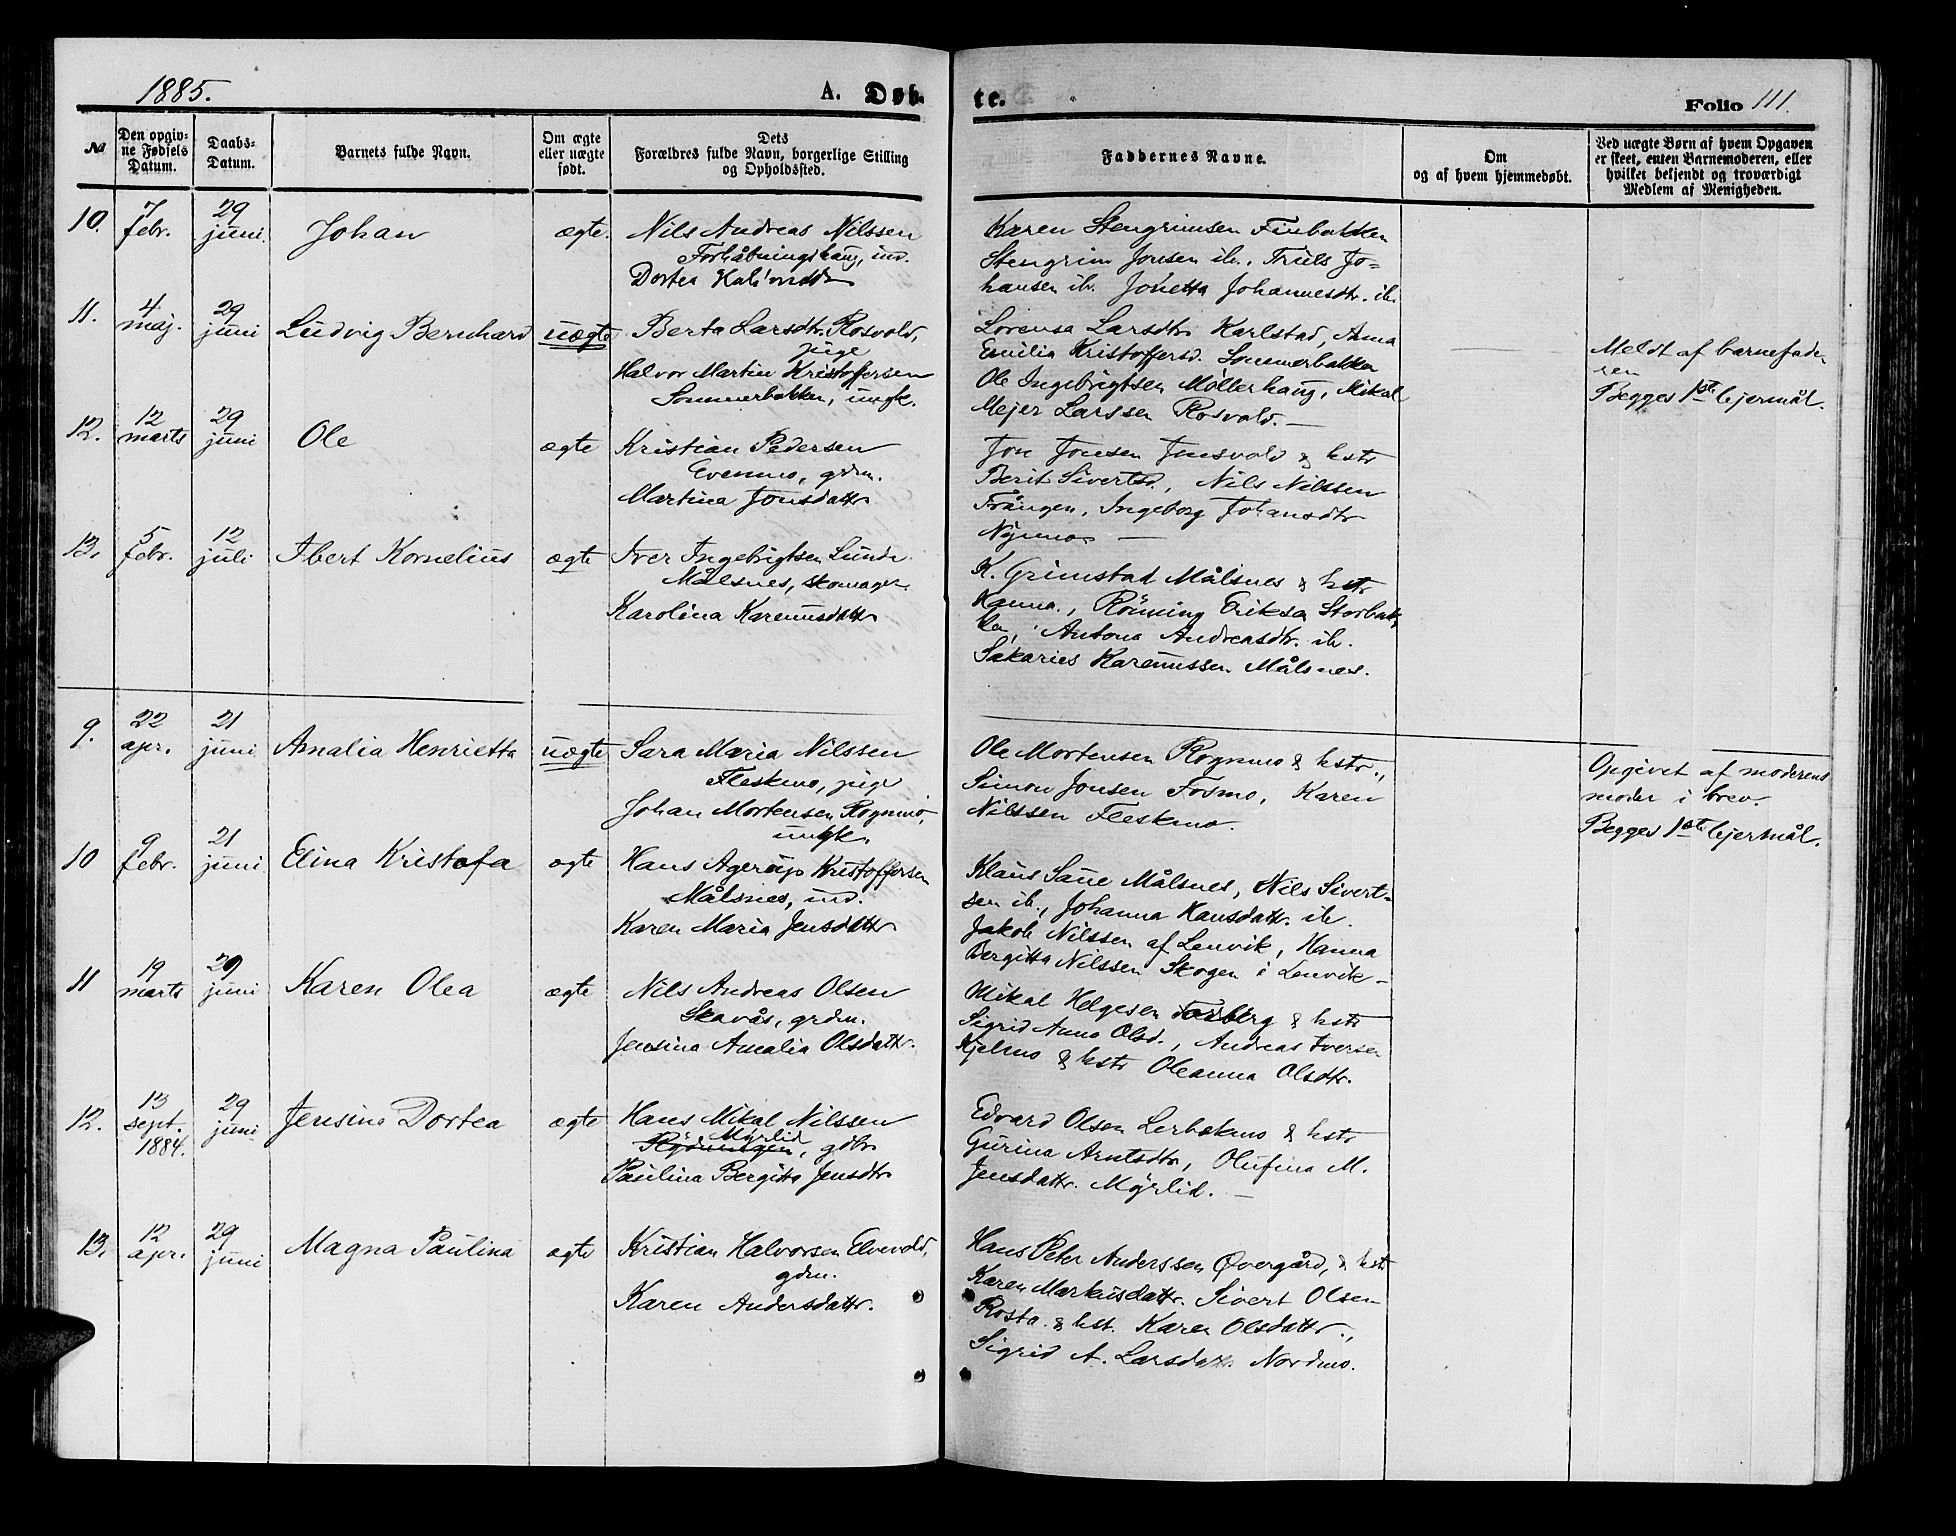 1885.
A. Døb-
te.
Folio 111.
№
Den opgiv-
ne Fødsels
Datum.
Daabs-
Datum.
Barnets fulde Navn.
Om ægte
eller uægte
født.
Dets
Forældres fulde Navn, borgerlige Stilling
og Opholdssted.
Faddernes Navne.
Om
og af hvem hjemmedøbt.
Ved uægte Børn af hvem Opgaven
er skeet, enten Barnemoderen, eller
hvilket bekjendt og troværdigt
Medlem af Menigheden.
10.
7
febr.
29
juni.
Johan
ægte.
Nils Andreas Nilssen
Forhåbningshaug, ind.
Dortea
Karen Stengrimsen Finbakken
Stengrim Jonsen ib., Truls Jo=
hansen ib. Jonetta Johannesdtr. ib.
11.
4
maj.
29
juni
Ludvig Bernhard
uægte
Berta Larsdtr. Rosvold,
pige
Halvor Martin Kristoffersen
Sommerbakken, ungk.
Lorensa Larsdtr Karlstad, Anna
Emilia Kristoffersd. Sommerbakken
Ole Ingebrigtsen Møllerhaug, Mikal
Mejer Larssen Rosvold. —
Meldt af barnefade
ren
Begges 1ste lejermål.
12.
12
marts
29
juni
Ole
ægte
Kristian Pedersen
Evenmo, grdm.
Martina Jonsdattr
Jon Jonsen Jonsvold & hstr
Berit Sivertsd., Nils Nilssen
Frången, Ingeborg Johansdtr
Nymo —
13.
5
febr.
12
juli
Ibert Kornelius
ægte
Iver Ingebrigtsen Lunde
Målsnes, skomager.
Karolina Karenusdattr
K. Grimstad Målsnes & hstr
Hanna., Rönning Eriksen Storbak
ken, Antona Andreasdtr. ib.
Sakarias Karenussen Målsnes.
9.
22
apr.
21
juni
Amalia Henrietta
uægte
Sara Maria Nilssen
Fleskmo, pige
Johan Mortensen Rognmo,
ungk.
Ole Mortensen Rognmo & hstr.,
Simon Jonsen Fosmo, Karen
Nilssen Fleskmo.
Opgivet af moderens
moder i brev.
Begges 1ste lejermål.
10
9
febr.
21
juni
Elina Kristofa
ægte
Hans Agerup Kristoffersen
Målsnes, ind.
Karen Maria Jensdattr
Klaus Saue Målsnes, Nils Sivert=
sen ib., Johanna Hansdattr. ib.
Jakob Nilssen af Lenvik, Hanna
Bergitta Nilssen Skogen i Lenvik —
11
19
marts
29
juni
Karen Olea
ægte
Nils Andreas Olsen
Skavås, grdm.
Jensina Amalia Olsdattr.
Mikal Helgesen Forberg & hstr
Sigrid Anna Olsd., Andreas Iversen
Kjelmo & hstr Oleanna Olsdtr.
12.
13
sept.
1884.
29
juni
Jensine Dortea
ægte
Hans Mikal Nilssen
Myrlid
Rydningen, gdbr
Paulina Bergitta Jensdtr
Edvard Olsen Lerbekmo & hstr
Gurina Arntsdtr, Olufina M.
Jensdattr. Myrlid. —
13.
12
apr.
29
juni
Magna Paulina
ægte
Kristian Halvorsen Elvevold,
gdm.
Karen Andersdattr.
Hans Peter Anderssen Øvergård, & hstr
Karen Markusdattr. Sivert Olsen
Rosta & hst. Karen Olsdattr.,
Sigrid A. Larsdatr. Nordmo.